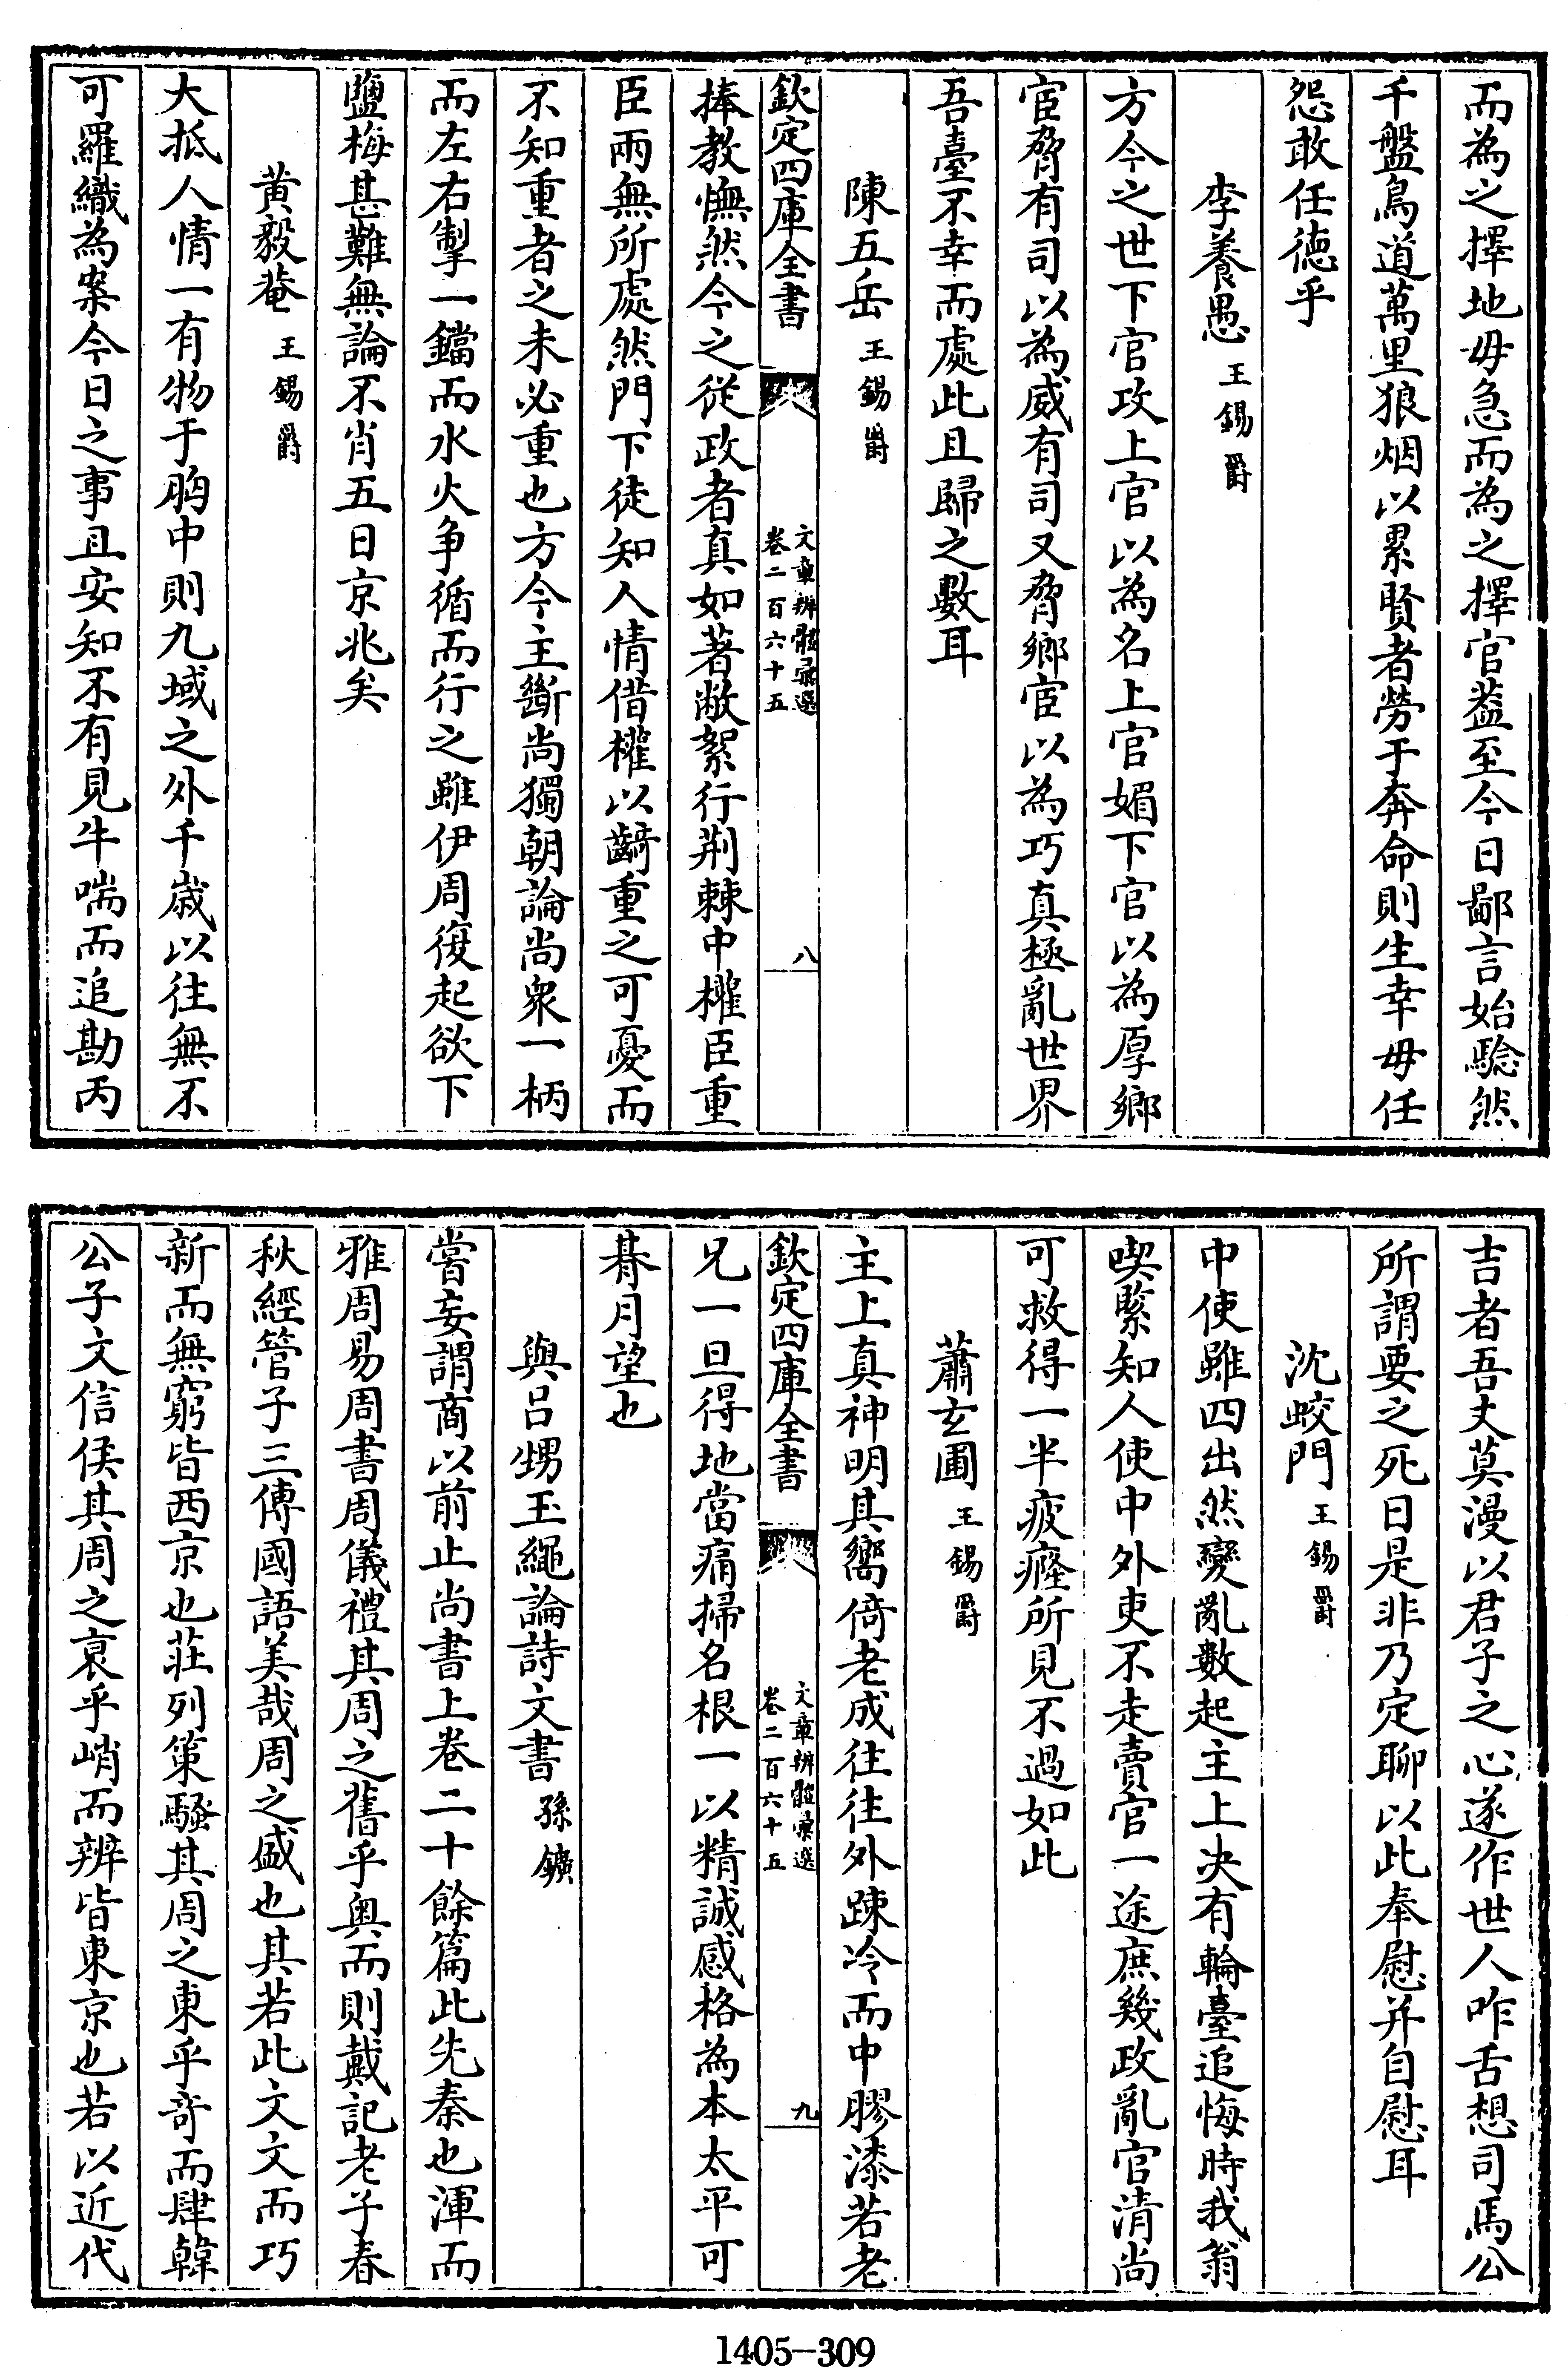 而為之擇地毋急而為之擇官葢至今日鄙言始驗然
千盤鳥道萬里狼烟以累賢者勞于奔命則生幸毋任
怨敢任徳乎
李養愚王錫爵
方今之世下官攻上官以為名上官媚下官以為厚鄉
宦脅有司以為威有司又脅鄉宦以為巧真極亂世界
吾臺不幸而處此且歸之數耳
陳五岳王錫爵
欽定四庫全書
文章辨體彙選
卷二百六十五
八
捧教憮然今之從政者真如著敝絮行荆棘中權臣重
臣兩無所處然門下徒知人情借權以齮重之可憂而
不知重者之未必重也方今主斷尚獨朝論尚衆一柄
而左右掣一鐺而水火争循而行之雖伊周復起欲下
鹽梅甚難無論不肖五日京兆矣
黄毅菴王錫爵
大抵人情一有物于胷中則九域之外千歳以往無不
可羅織為案今日之事且安知不有見牛喘而追勘丙
吉者吾丈莫漫以君子之心遂作世人咋舌想司馬公
所謂要之死日是非乃定聊以此奉慰并自慰耳
沈蛟門王錫爵
中使雖四出然變亂數起主上决有輪臺追悔時我翁
喫緊知人使中外吏不走賣官一途庶幾政亂官清尚
可救得一半疲癃所見不過如此
蕭玄圃王錫爵
主上真神明其嚮倚老成往往外踈冷而中膠漆若老
欽定四庫全書
文章辨體彙選
卷二百六十五
九
兄一旦得地當痛掃名根一以精誠感格為本太平可
朞月望也
與呂甥玉繩論詩文書孫鑛
嘗妄謂商以前止尚書上卷二十餘篇此先秦也渾而
雅周易周書周儀禮其周之舊乎奥而則戴記老子春
秋經管子三傳國語美哉周之盛也其若此文文而巧
新而無窮皆西京也莊列策騷其周之東乎竒而肆韓
公子文信侯其周之衰乎峭而辨皆東京也若以近代
1405-309